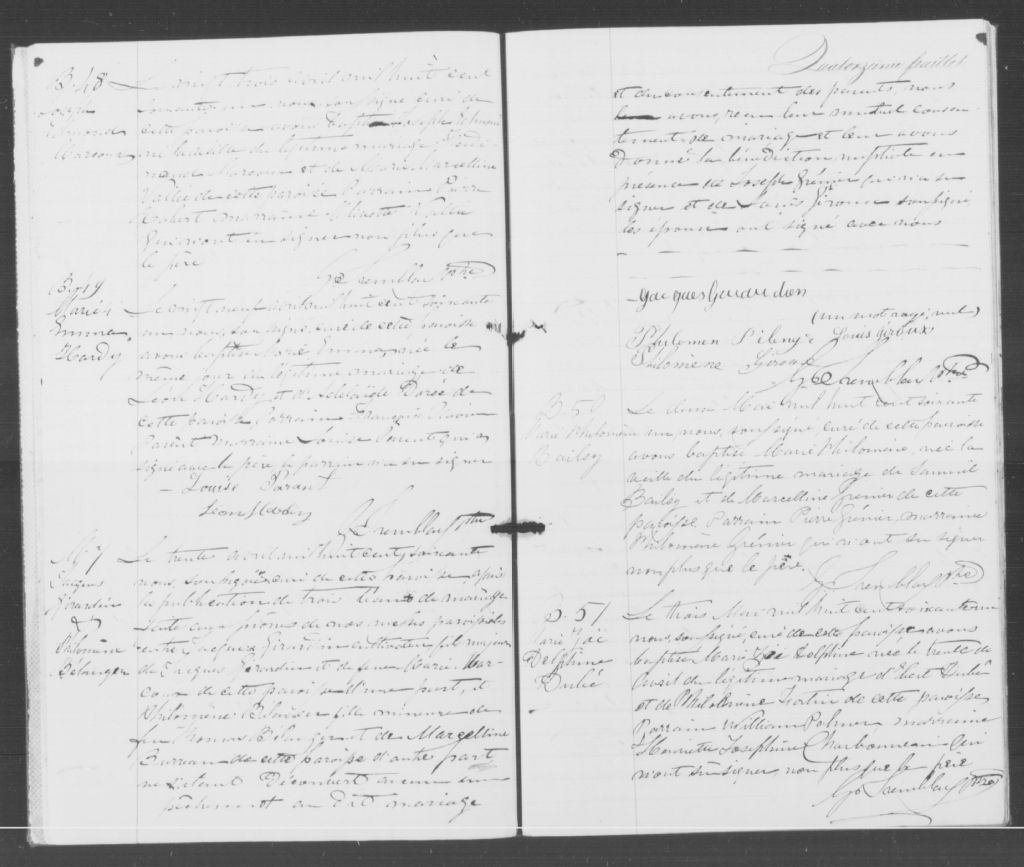 B. 48
Joseph
Edmond
Marcoux
Le vingt trois avril mil huit cent
soixante un nous soussigné curé de
cette paroisse avons baptisé Joseph Edmond
né la veille du légitime mariage
Marcoux et de Marie Marcelline
Vallée de cette paroisse Parrain Pierre
marraine
qui n'ont su signer non plus que
le père
G Tremblay Ptre
B. 49
Marie
Emma
Hardy
Le vingt neuf avril mil huit cent soixante
un nous, soussigné, curé de cette paroisse
avons baptisé Marie Emma, née le
même jour du légitime mariage de
Léon Hardy et d'Adélaïde Doré de
cette paroisse Parrain François
Parent marraine Louise Parent qui a
signé avec le père le parrain n'a su signer
Louise Parant
Leon Hardy
G Tremblay Ptre
M. 7
Jacques
Girardin
&
Philomène
Bélanger
Le trente avril mil huit cent soixante
nous, soussigné curé de cette paroisse après
la publication de trois bans de mariage
faite aux prônes de nos messes paroissiales
entre Jacques Girardin cultivateur fils majeur
de Jacques Girardin et de feue Marie Mar-
coux de cette paroisse d'une part, et
Philomène Bélanger fille mineure de
feu Thomas Bélanger et de Marcelline
de cette paroisse d'autre part
ne s'étant découvert aucun em-
pêchement au dit mariage
Quatorzième feuillet
et du consentement des parents, nous
avons reçu leur mutuel consen-
tement de mariage et leur avons
donné la bénédiction nuptiale en
présence de Joseph Grénier qui n'a su
signer et de Louis Giroux soussigné,
les époux ont signé avec nous
Jacques Girardin
(un mot rayé nul)
Philomen Bélengé Louis Giroux
Philomène Giroux
G Tremblay Ptre
B. 50
Marie Philomène
Bailey
Le deux Mai mil huit cent soixante
un nous, soussigné, curé de cette paroisse
avons baptisé Marie Philomène, née la
veille du légitime mariage de Samuel
Bailey et de Marcelline Grénier de cette
paroisse Parrain Pierre Grénier, marraine
Philomène Grénier qui n'ont su signer
non plus que le père.
G Tremblay Ptre
B. 51
Marie Zoé
Delphine
Dubé
Le trois Mai mil huit cent soixante un
nous, soussigné, curé de cette paroisse avons
baptisé Marie Zoé Delphine née le trente du
légitime mariage Dubé
et de Philomène Fortin de cette paroisse
Parrain William Palmer marraine
Henriette Josephine Charbonneau qui
n'ont su signer, non plus que le père
G Tremblay Ptre